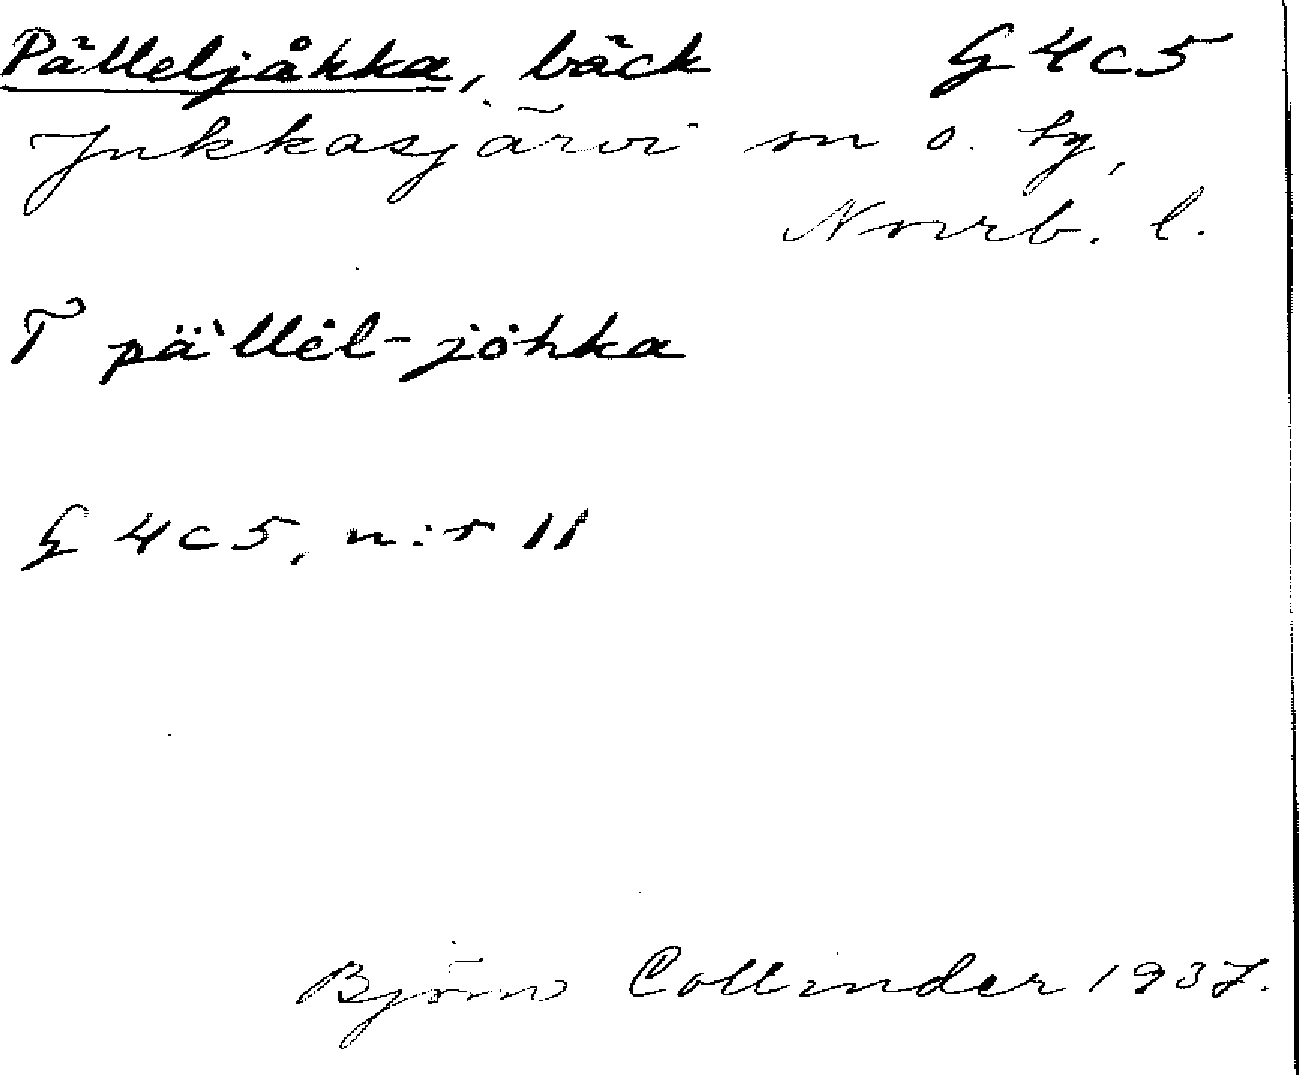 Pälleljåkka, bäck G 4 c 5
Jukkasjärvi sn o. tg,
Norrb. l.
T pä`llėl-jȯhka
G 4 c 5, n:r 11
Björn Collinder 1937.